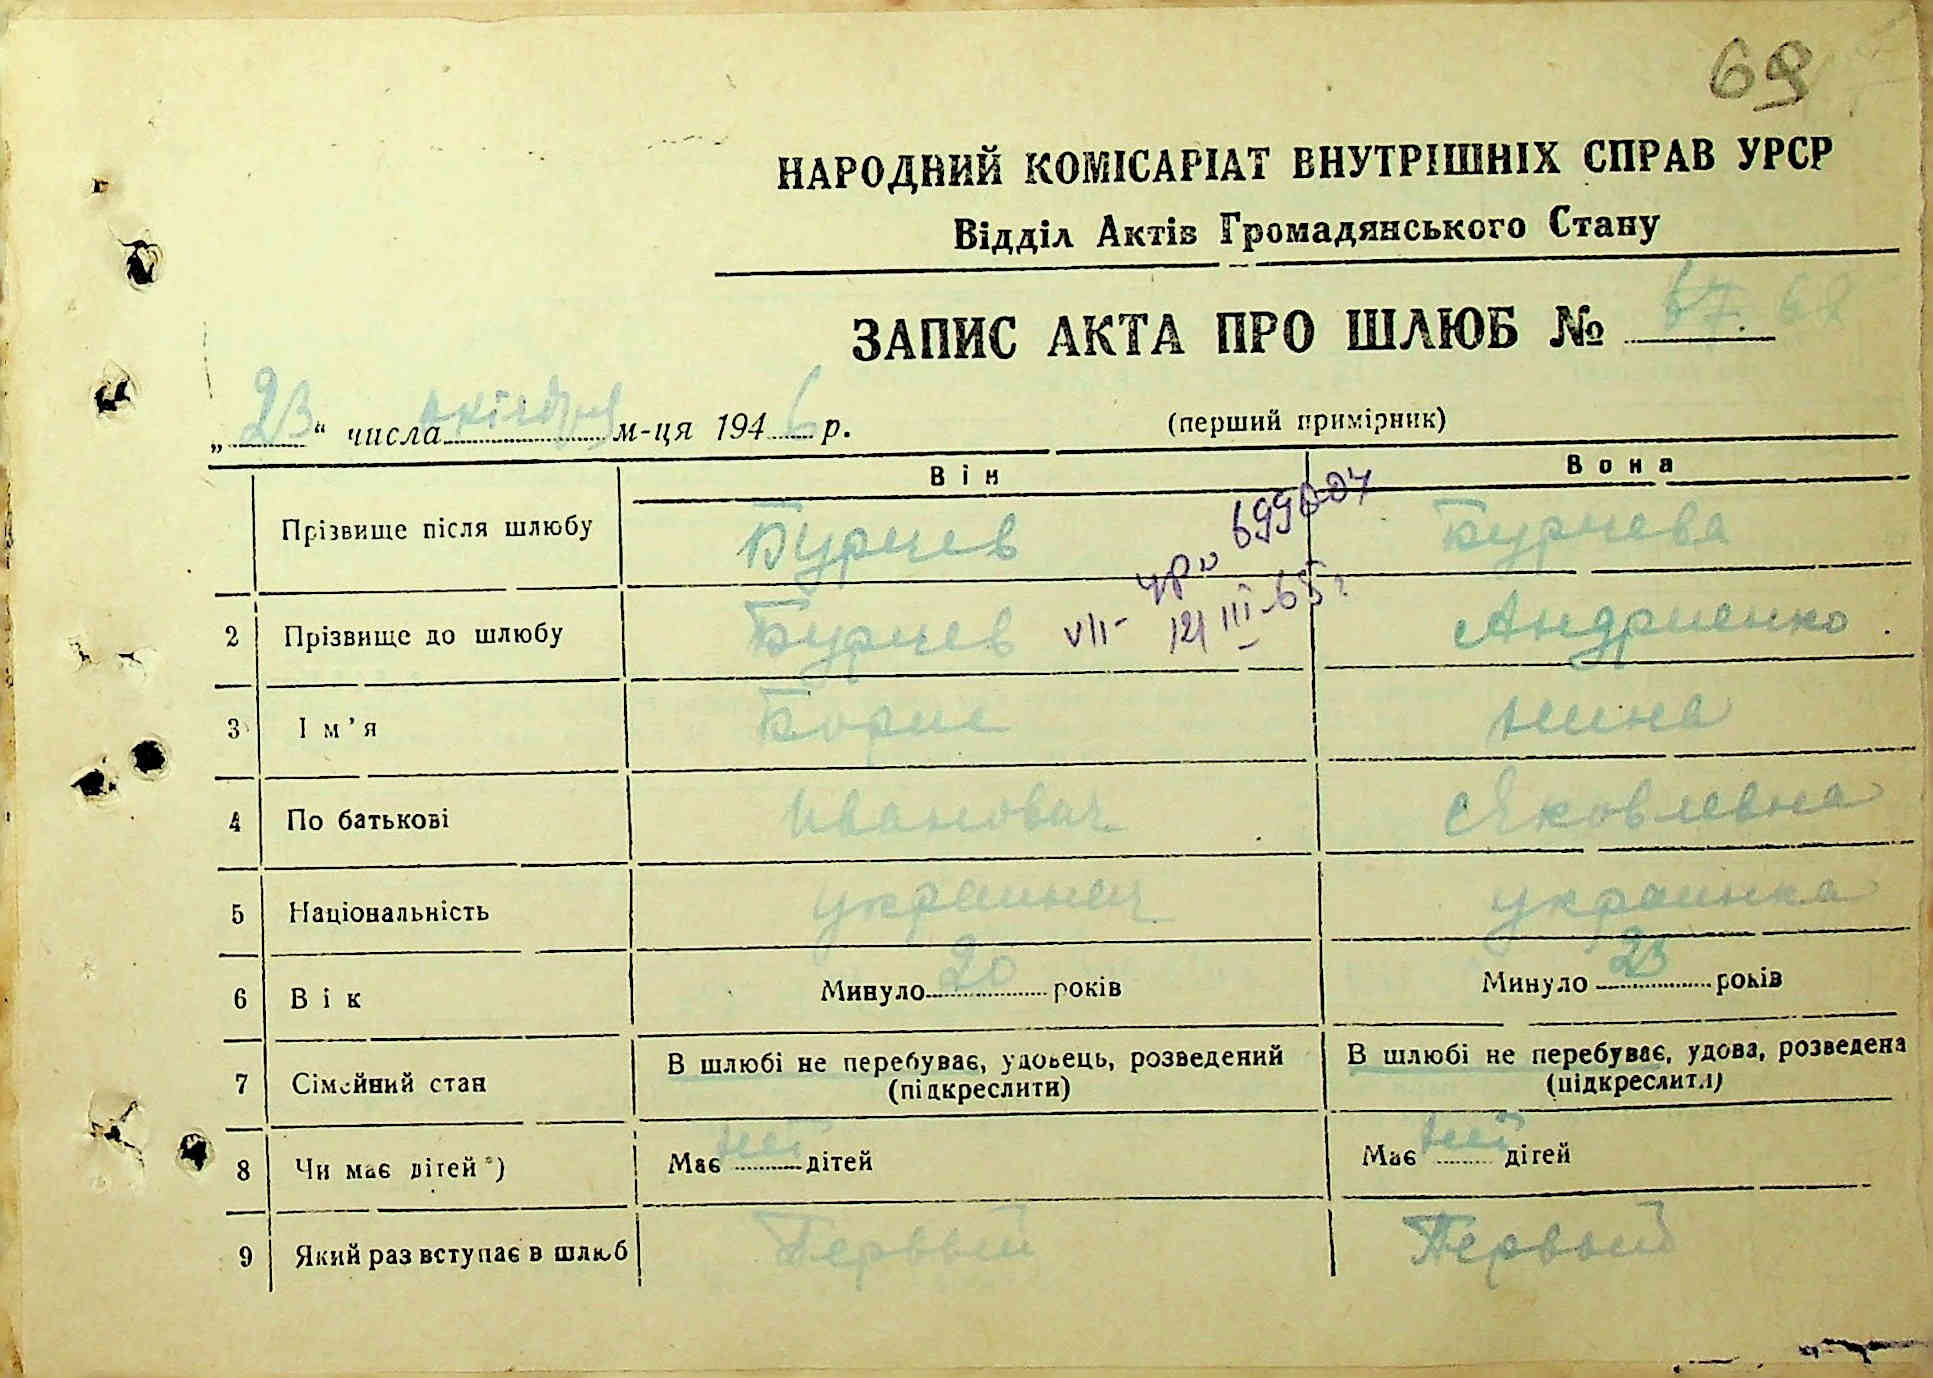 69
НАРОДНИЙ КОМІСАРІАТ ВНУТРІШНІХ СПРАВ УРСР
Відділ Актів Громадянського Стану
ЗАПИС АКТА ПРО ШЛЮБ № 67 68
„23“ числа октября м-ця 1946 р. (перший примірник)
Він Вона
Прізвище після шлюбу Бурчев Бурчева
2 Прізвище до шлюбу Бурчев Андриенко
3 Ім'я Борис Нина
4 По батькові Иванович Яковлевна
5 Національність украинец украинка
6 Вік Минуло 20 років Минуло 23 років
7 Сімейний стан В шлюбі не перебуває, удовець, розведений (підкреслити) В шлюбі не перебуває, удова, розведена (підкреслити)
8 Чи має дітей*) Має нет дітей Має нет дітей
9 Який раз вступає в шлюб Первый Первый